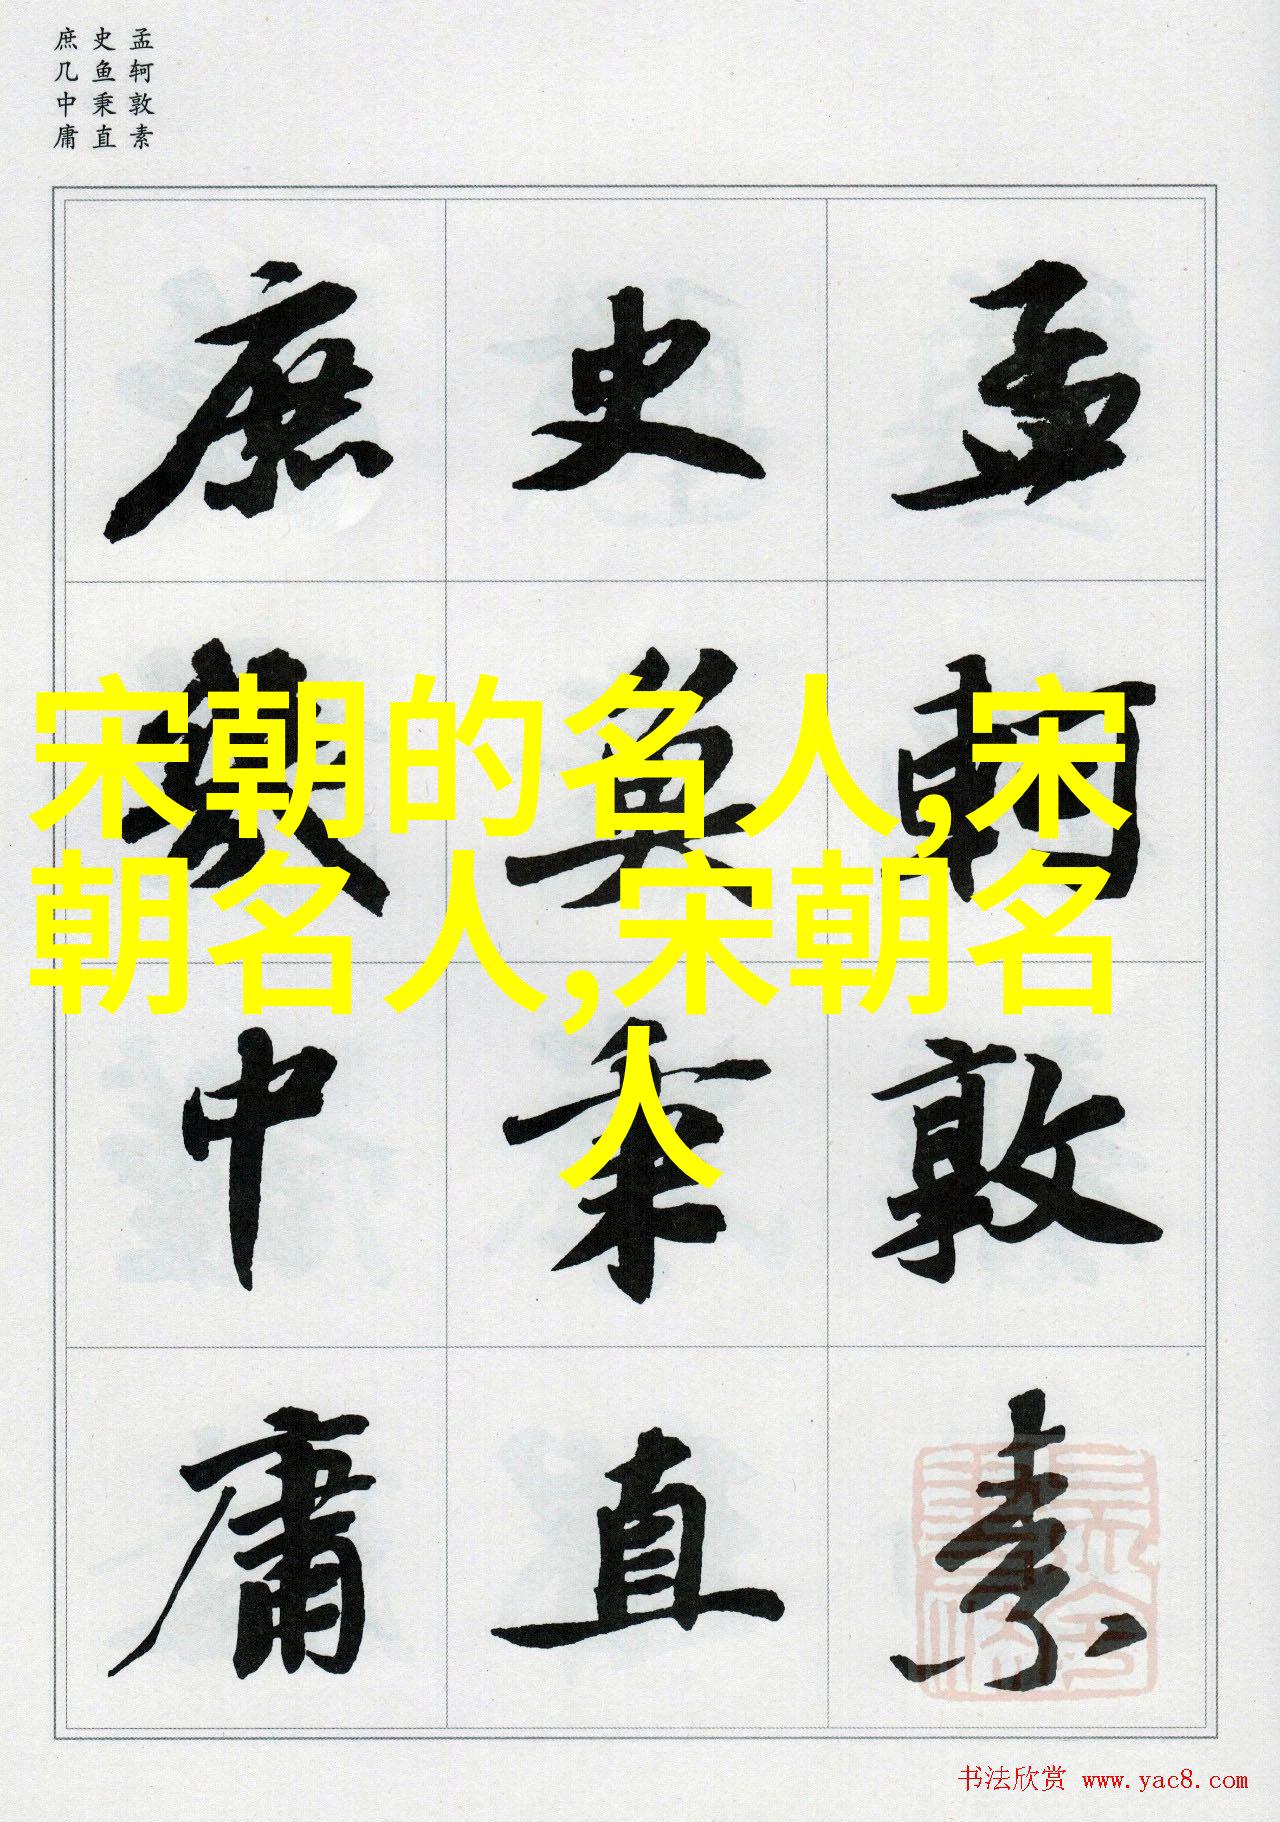 孟轲敦素
史鱼秉直
庶几中庸
孟軻敦素
史魚秉直
庶幾中庸
宋朝的名人,宋
朝名人,宋朝名
人
书法欣赏 www.yac8.com